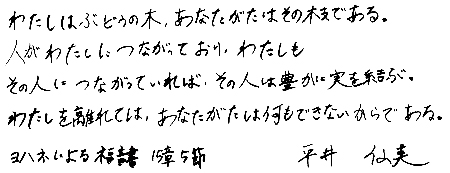 わたしはぶどうの木、あなたがたはその枝である。
人がわたしにつながっており、わたしも
その人につながっていれば、その人は豊かに実を結ぶ。
わたしを離れては、あなたがたは何もできないからである。
ヨハネによる福音書 15章5節 平井